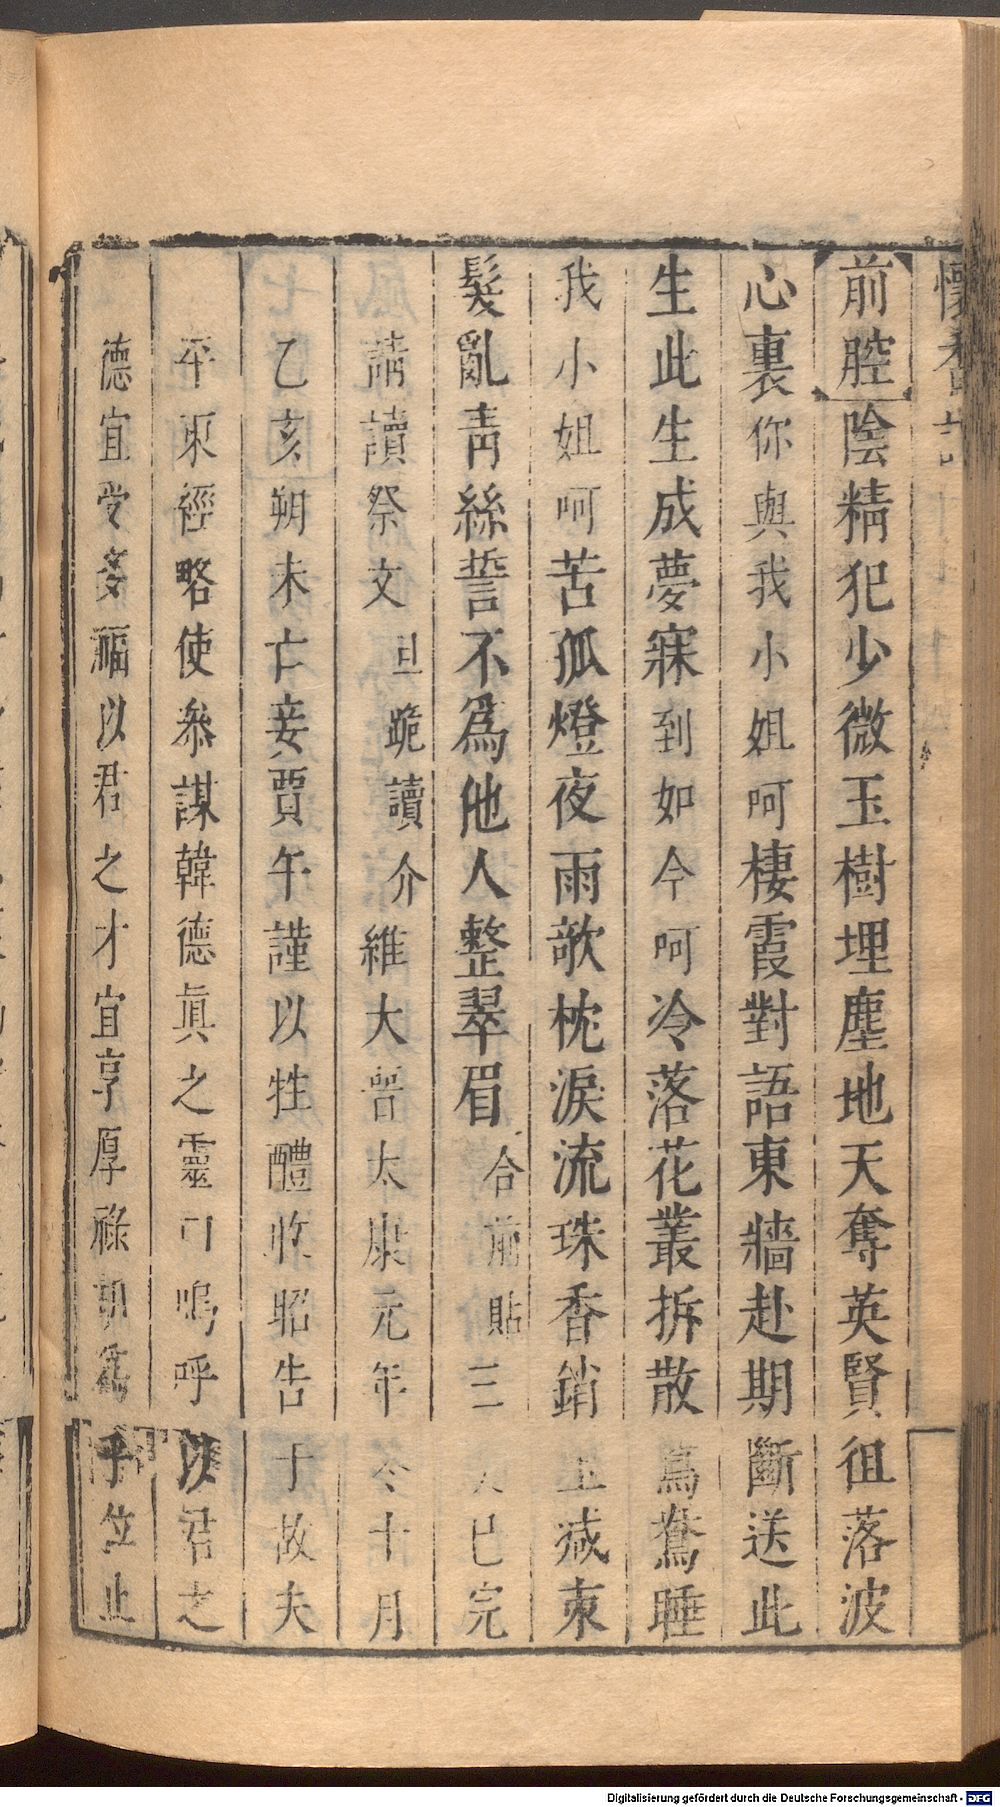 懷香記
前腔陰精犯少微玉樹埋塵地天奪英賢徂落波
心裏你與我小姐呵棲霞對語東牆赴期斷送此
生此生成夢寐到如今呵冷落花叢拆散鴛鴦睡
我小姐呵苦孤燈夜雨歌枕淚流珠香銷玉減東
髮亂青絲誓不為他人整翠眉合前貼三已完
請讀祭文旦跪讀介維大晉太康元年冬十月
乙亥朔未亡妾賈午謹以牲醴昭告于故夫
平東經略使參謀韓德眞之靈曰嗚呼以君之
德宜受多福以君之才宜享厚祿胡爲乎位止
Digitalisierung gefördert durch die Deutsche Forschungsgemeinschaft - DFG